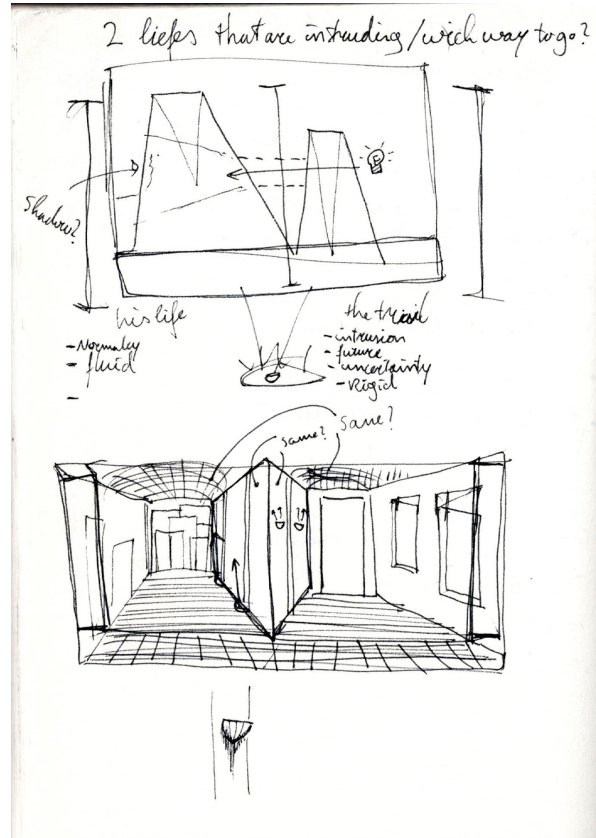 2 liefes that are intruding/wich way to go?
Shadow?
his life
- Normaley
- fluid
-
the trial
- intrusion
- future
- uncertainty
- Rigid
same?
same?